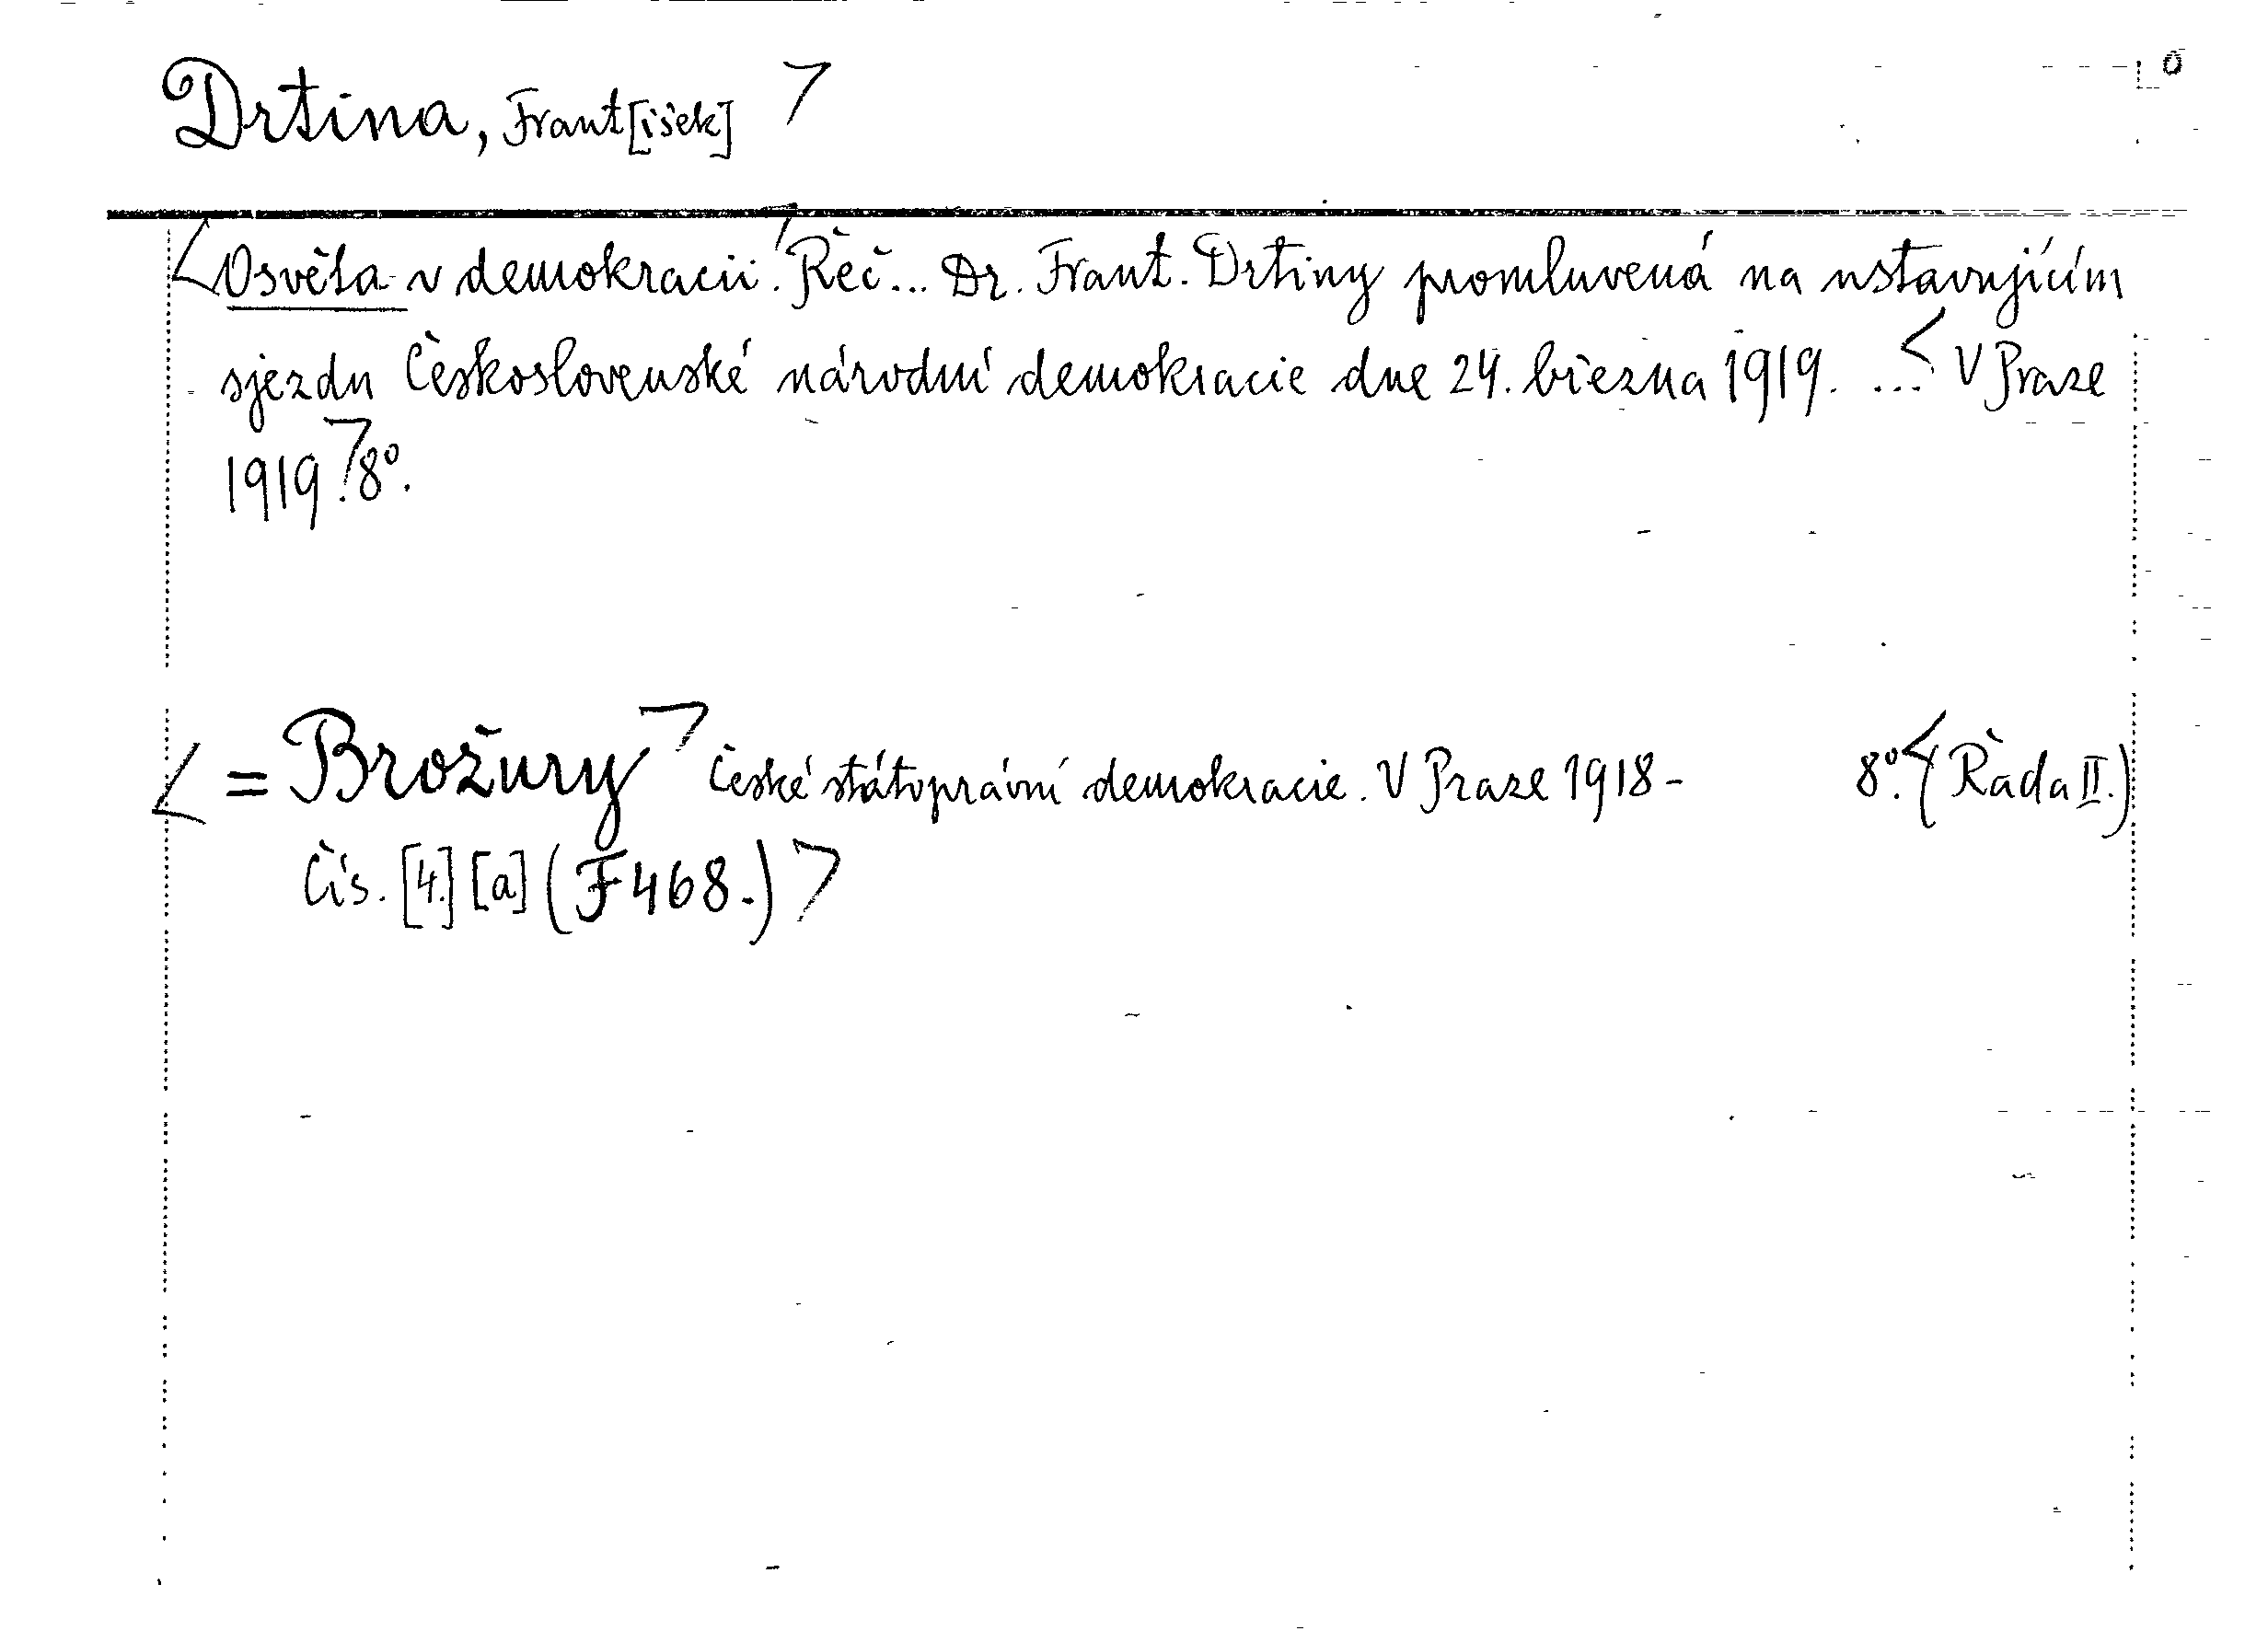 Drtina, Frant[išek]
Osvěta v demokracii. Řeč... Dr. Frant. Drtiny promluvená na ustavujícím
sjezdu Československé národní demokracie dne 24. března 1919. ... V Praze
1919. 8°.
= Brožury České státoprávní demokracie. V Praze 1918- 8°. (Řada II.)
Čís. [4.] [a] (F 468.)